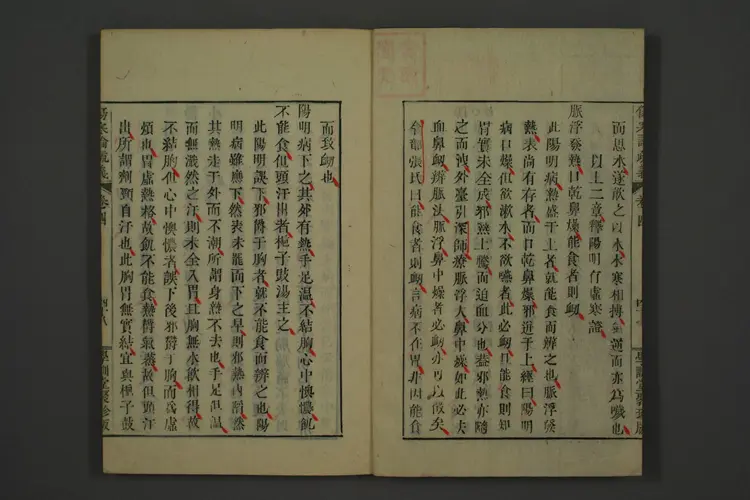 而思水遂飲之以水水寒相搏氣逆而亦為噦也
以上二章釋陽明有虛寒證
脈浮發熱口乾鼻燥能食者則衂
此陽明病熱盛于上者就能食而辨之也脈浮發
熱表尚有存者而口乾鼻燥邪迸于上經曰陽明
病口燥但欲漱水不欲嚥者此必衂且能食則知
胃實未全成邪熱上騰而迫血分也蓋邪熱亦隨
之而洩外臺引深師療脈浮大鼻中燥如此必去
血鼻衂辨脈法脈浮鼻中燥者必衂亦可以徵矣
張氏曰能食者則衂言病不在胃非因能食
而致衂也
陽明病下之其外有熱手足溫不結胸心中懊憹飢
不能食但頭汗出者梔子豉湯主之
此陽明誤下邪鬱于胸者就不能食而辨之也陽
明病雖應下然表未罷而下之早則邪熱內鬱然
其熱走于外而不潮所謂身熱不去也手足但溫
而無濈然之汗則未全入胃且胸無水飲相得故
不結胸但心中懊憹者誤下後邪鬱于胸而為虛
煩也胃虛熱格故飢不能食熱鬱氣蒸故但頭汗
出所謂劑頸自汗也此胸胃無實結宜與梔子豉
傷寒論疏義
卷四
四十八
學訓堂聚珍版